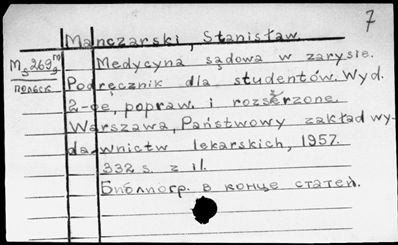 7
Manczarski, Stanisław.
M 269 m
5 9
польск
Medycyna sądowa w zarysie.
Podręcznik dla studentów. Wyd.
2-gę, popraw. i rozszerzone.
Warszawa, Państwowy zakład wy-
dawnictw lekarskich, 1957.
332 s. z il.
Библиогр. в конце статей.